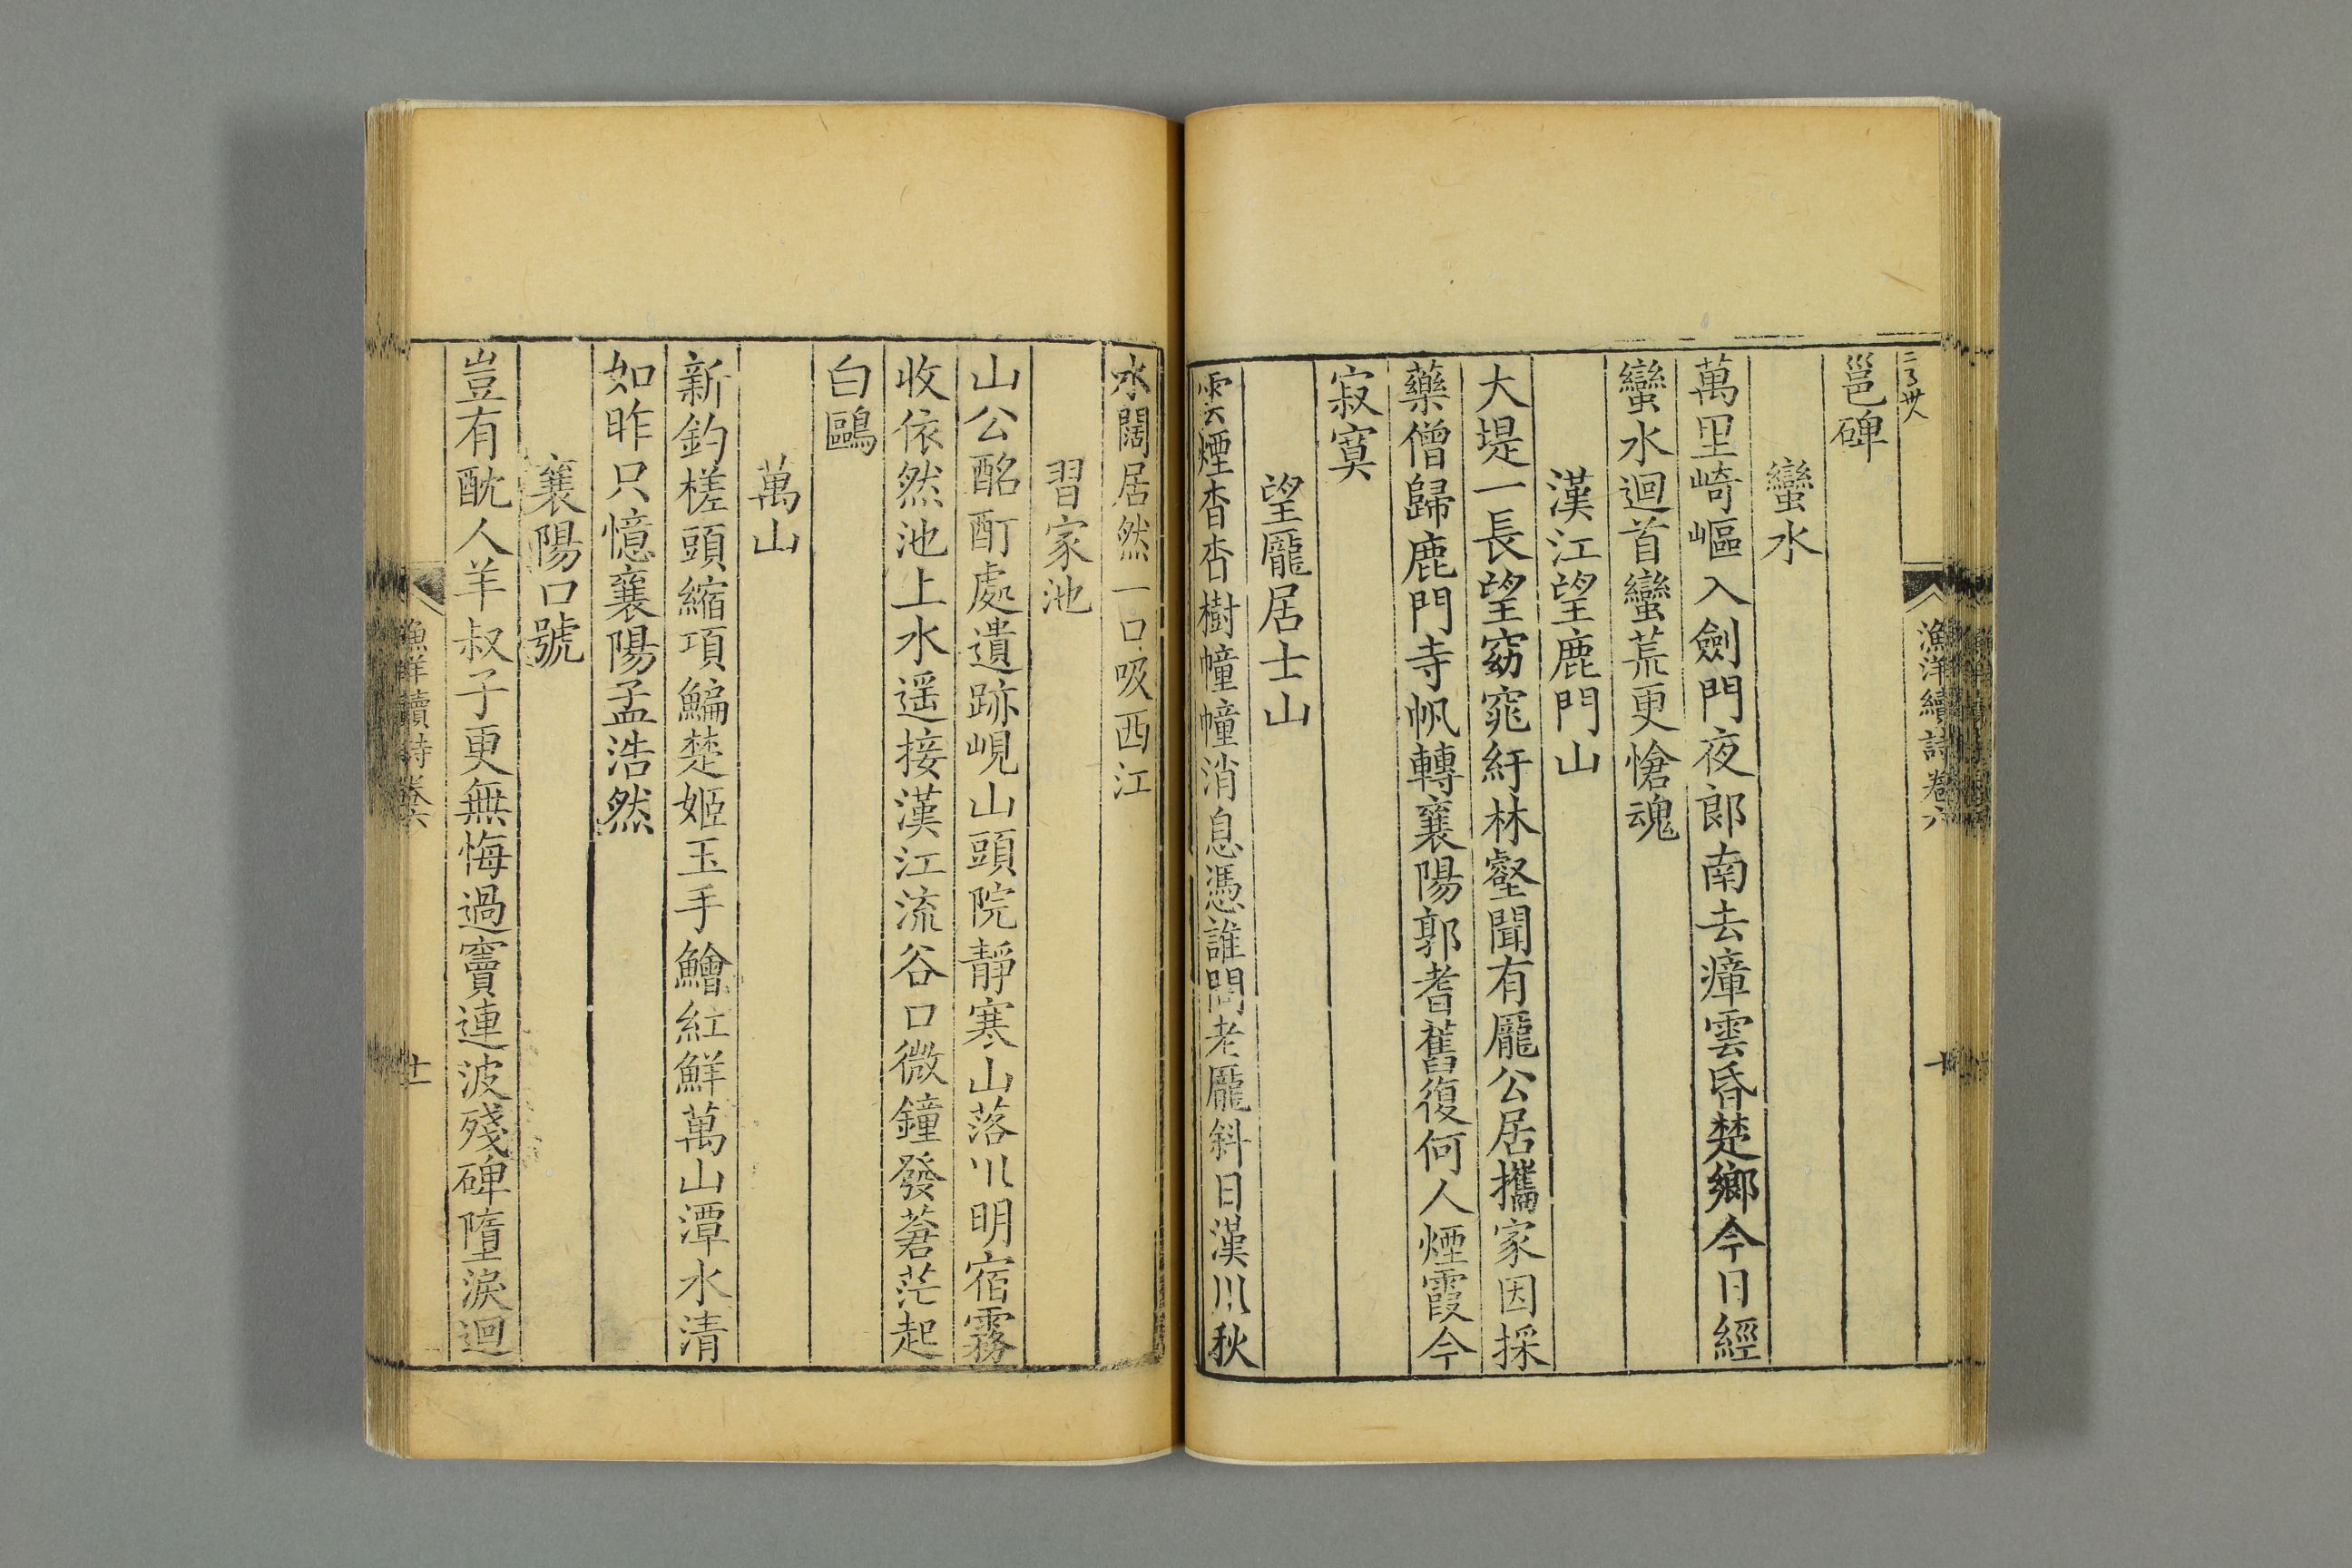 漁洋續詩卷六
十
邕碑
蠻水
萬里崎嶇入劍門夜郎南去瘴雲昏楚鄉今日經
蠻水迴首蠻荒更愴魂
漢江望鹿門山
大堤一長望窈窕紆林壑聞有龐公居攜家因採
藥僧歸鹿門寺帆轉襄陽郭耆舊復何人煙霞今
寂寞
望龐居士山
雲煙杳杳樹幢幢消息憑誰問老龐斜日漢川秋
水闊居然一口吸西江
習家池
山公酩酊處遺跡峴山頭院靜寒山落川明宿霧
收依然池上水遥接漢江流谷口微鐘發蒼茫起
白鷗
萬山
新釣槎頭縮項鯿楚姬玉手鱠紅鮮萬山潭水清
如昨只憶襄陽孟浩然
襄陽口號
豈有酖人羊叔子更無悔過竇連波殘碑墮淚迴
漁洋續詩卷六
十一